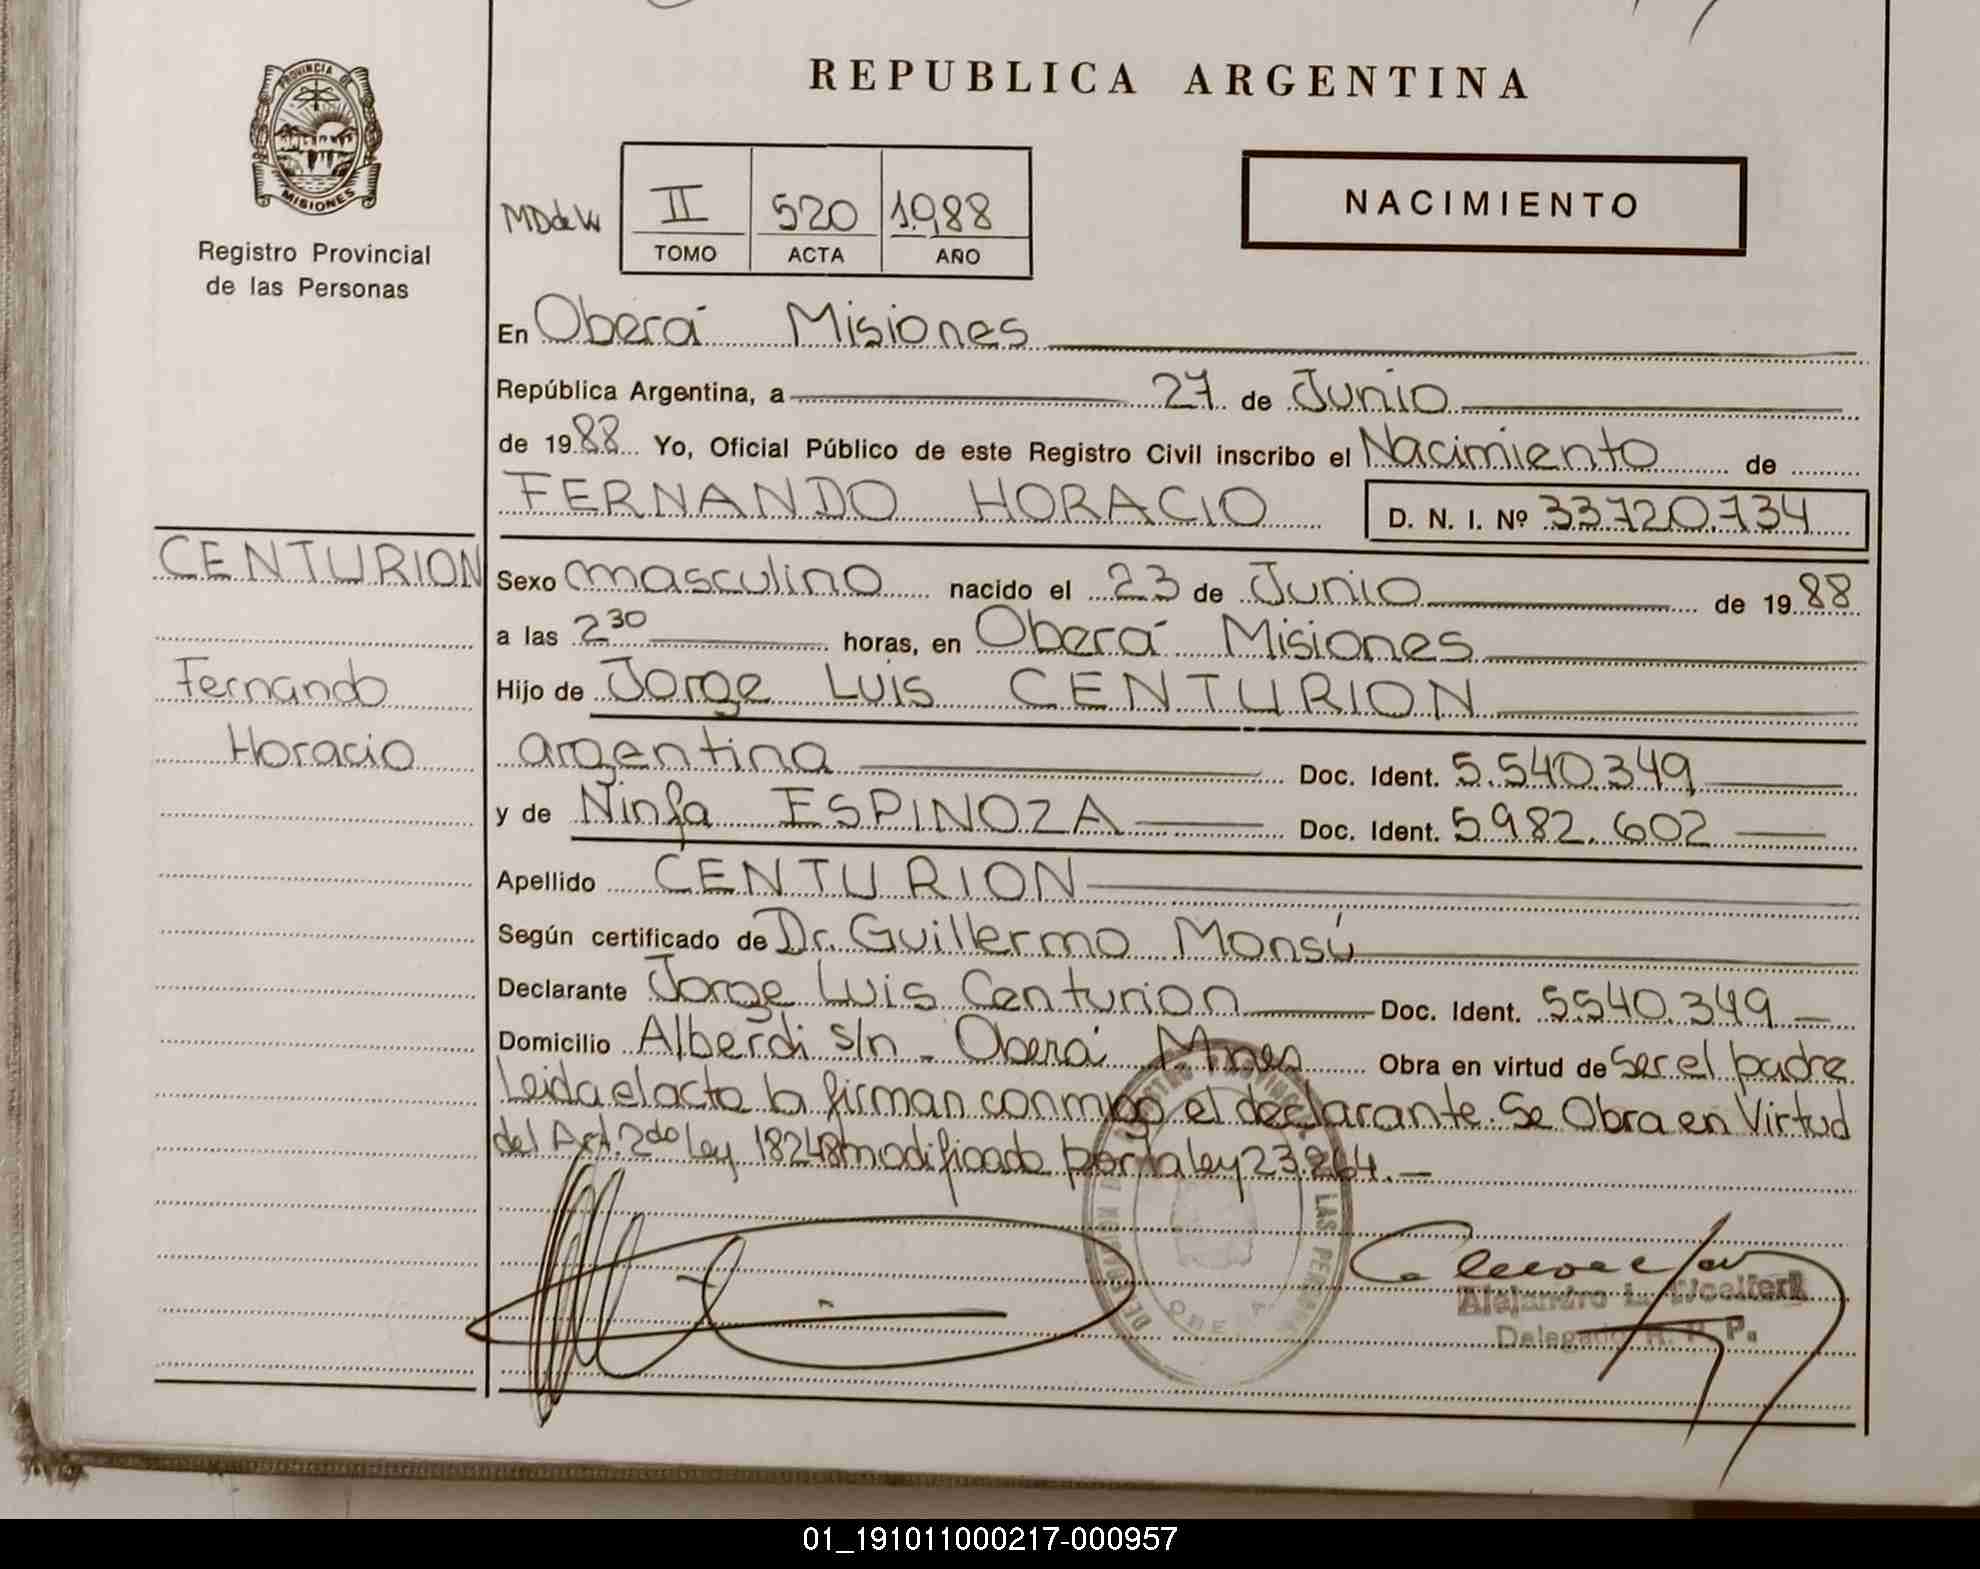 PROVINCIA DE
MISIONES
Registro Provincial
de las Personas
REPUBLICA ARGENTINA
NACIMIENTO
MDdeW
II 520 1988
TOMO ACTA AÑO
En Oberá Misiones
República Argentina, a 27 de Junio
de 1988 Yo, Oficial Público de este Registro Civil inscribo el Nacimiento de
FERNANDO HORACIO D. N. I. Nº 33.720.734
CENTURION
Fernando
Horacio
Sexo masculino nacido el 23 de Junio de 1988
a las 2 30 horas, en Oberá Misiones
Hijo de Jorge Luis CENTURION
argentina Doc. Ident. 5.540.349
y de Ninfa ESPINOZA Doc. Ident. 5.982.602
Apellido CENTURION
Según certificado de Dr. Guillermo Monsú
Declarante Jorge Luis Centurion Doc. Ident. 5.540.349
Domicilio Alberdi s/n - Oberá Mnes Obra en virtud de Ser el padre
Leida el acta la firman conmigo el declarante. Se Obra en Virtud
del Art. 2do ley 18248 modificado por la ley 23.264.-
OBERA
Alejandro L.
Delegado R. P. P.
01_191011000217-000957